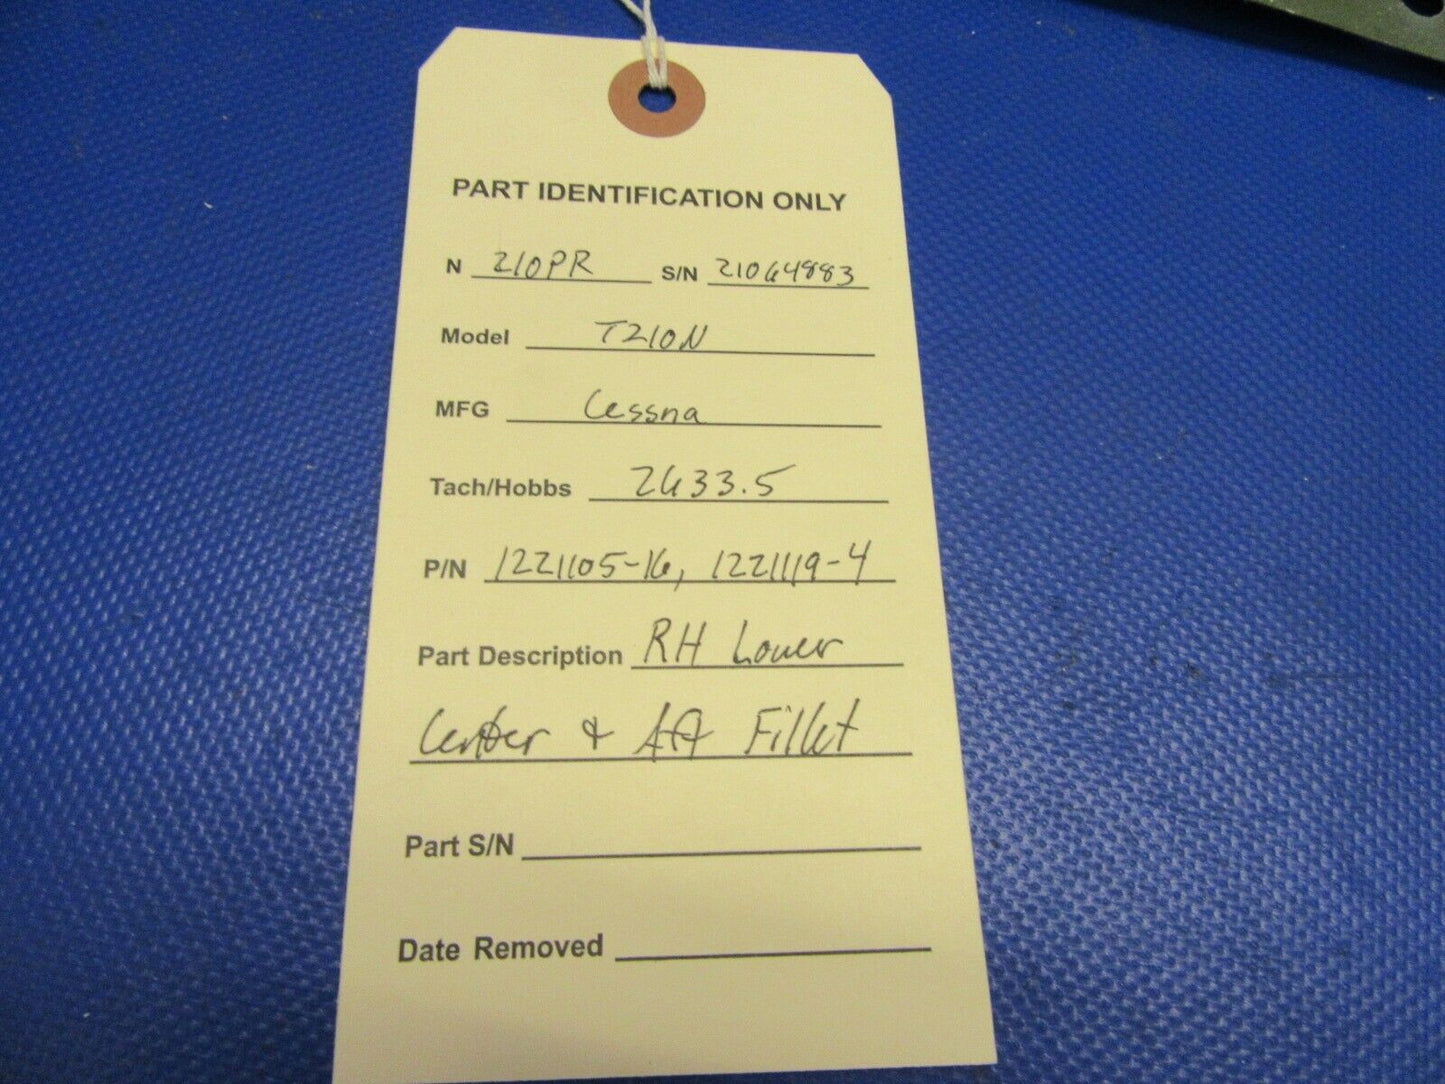 PART IDENTIFICATION ONLY
N 210PR S/N 21064883
Model T210N
MFG Cessna
Tach/Hobbs 2633.5
P/N 1221105-16, 1221119-4
Part Description RH Lower
Center & Aft Fillet
Part S/N
Date Removed